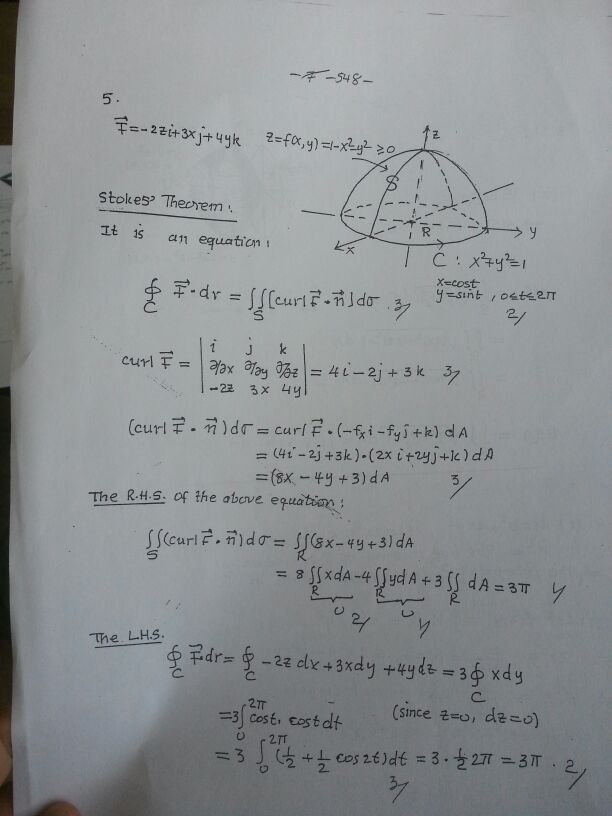 -7-548-
5.
F⃗=-2zi+3xj+4yk   z=f(x,y)=1-x²-y²≥0
z
S
Stokes' Theorem:
It is an equation:
R
y
x
C: x²+y²=1
x=cost
y=sint, 0≤t≤2π
2/
∮_C F⃗·dr = ∬_S[curl F⃗·n⃗]dσ. 3/
curl F⃗ = | i j k |
| ∂/∂x ∂/∂y ∂/∂z | = 4i-2j+3k 3/
| -2z 3x 4y |
(curl F⃗·n⃗)dσ = curl F⃗·(-fxi-fyj+k)dA
= (4i-2j+3k)·(2xi+2yj+k)dA
= (8x-4y+3)dA 3/
The R.H.S. of the above equation:
∬_S(curl F⃗·n⃗)dσ = ∬_R(8x-4y+3)dA
= 8∬_R xdA-4∬_R ydA+3∬_R dA=3π 4/
0 2/ 0 4/
The L.H.S.
∮_C F⃗dr=∮_C -2zdx+3xdy+4ydz=3∮_C xdy
=3∫₀^2π cost.costdt (since z=0, dz=0)
=3 ∫₀^2π (1/2+1/2 cos2t)dt = 3·1/2 2π = 3π. 2/
3/